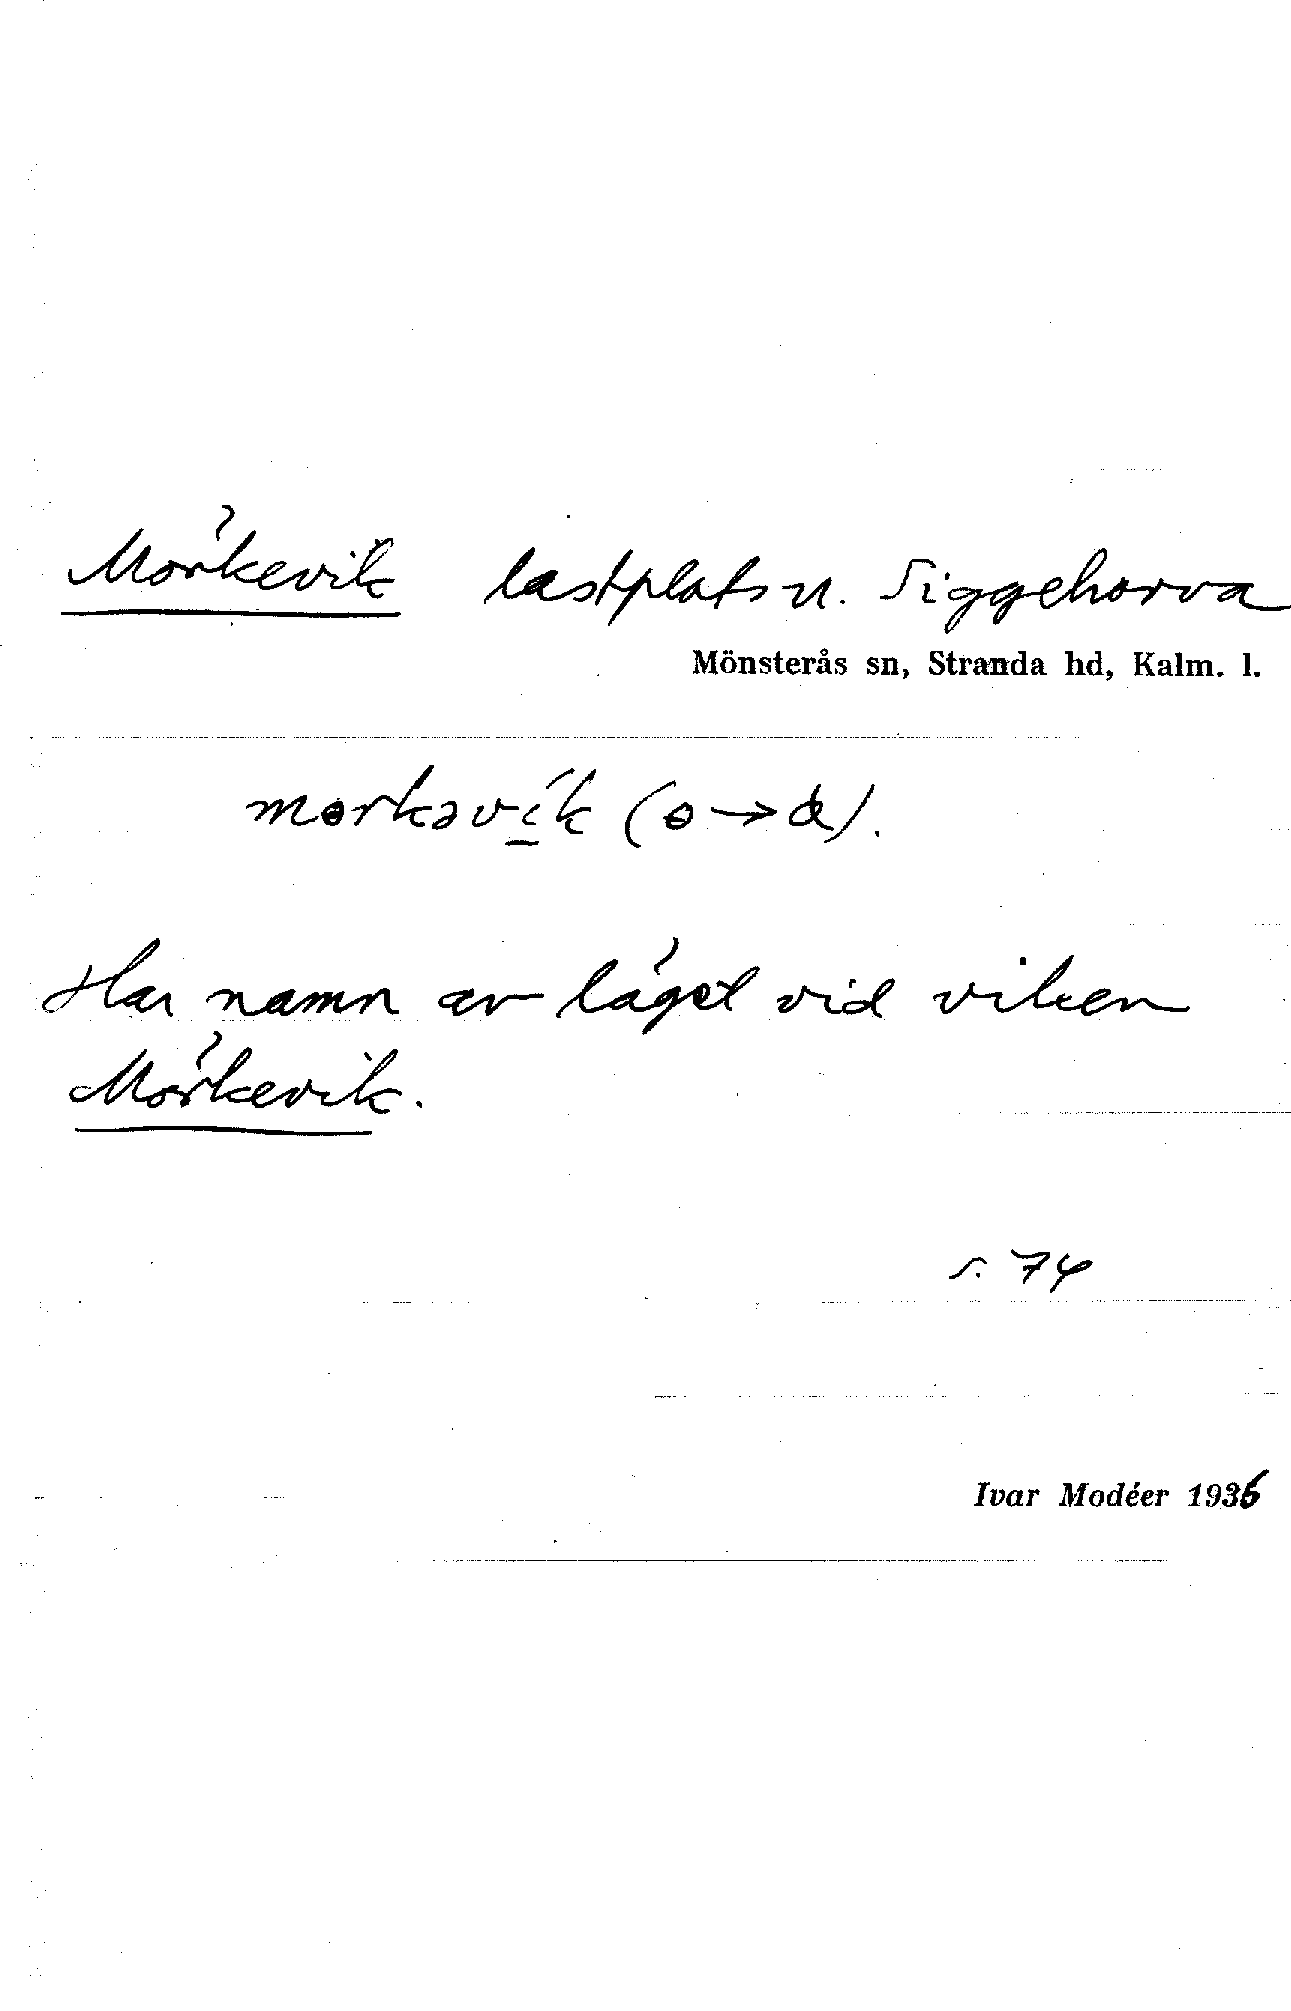 Mörkevik lastplats u. Siggehorva
Mönsterås sn, Stranda hd, Kalm. l.
mɵrkəvík (ɵ→
Har namn av läget vid viken
Mörkevik.
s. 74
Ivar Modéer 1936